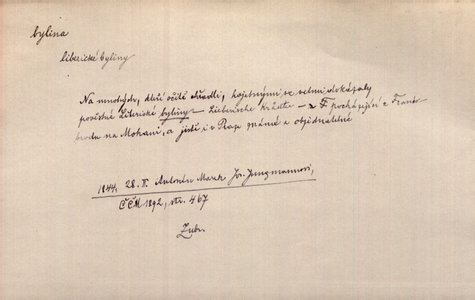 bylina
liberické byliny
Na mnohých, kteří očitě viděli, hojitnými se velmi dokázaly
pověstné Liberické byliny – Lieberische Kräuter – z F pocházející z Frank-
brodu na Mohani, a jistě i v Praze známé a objednatelné
1844 28. Antonín Marek Jos. Jungmannovi,
ČČM 1892, str. 467
Zubr.